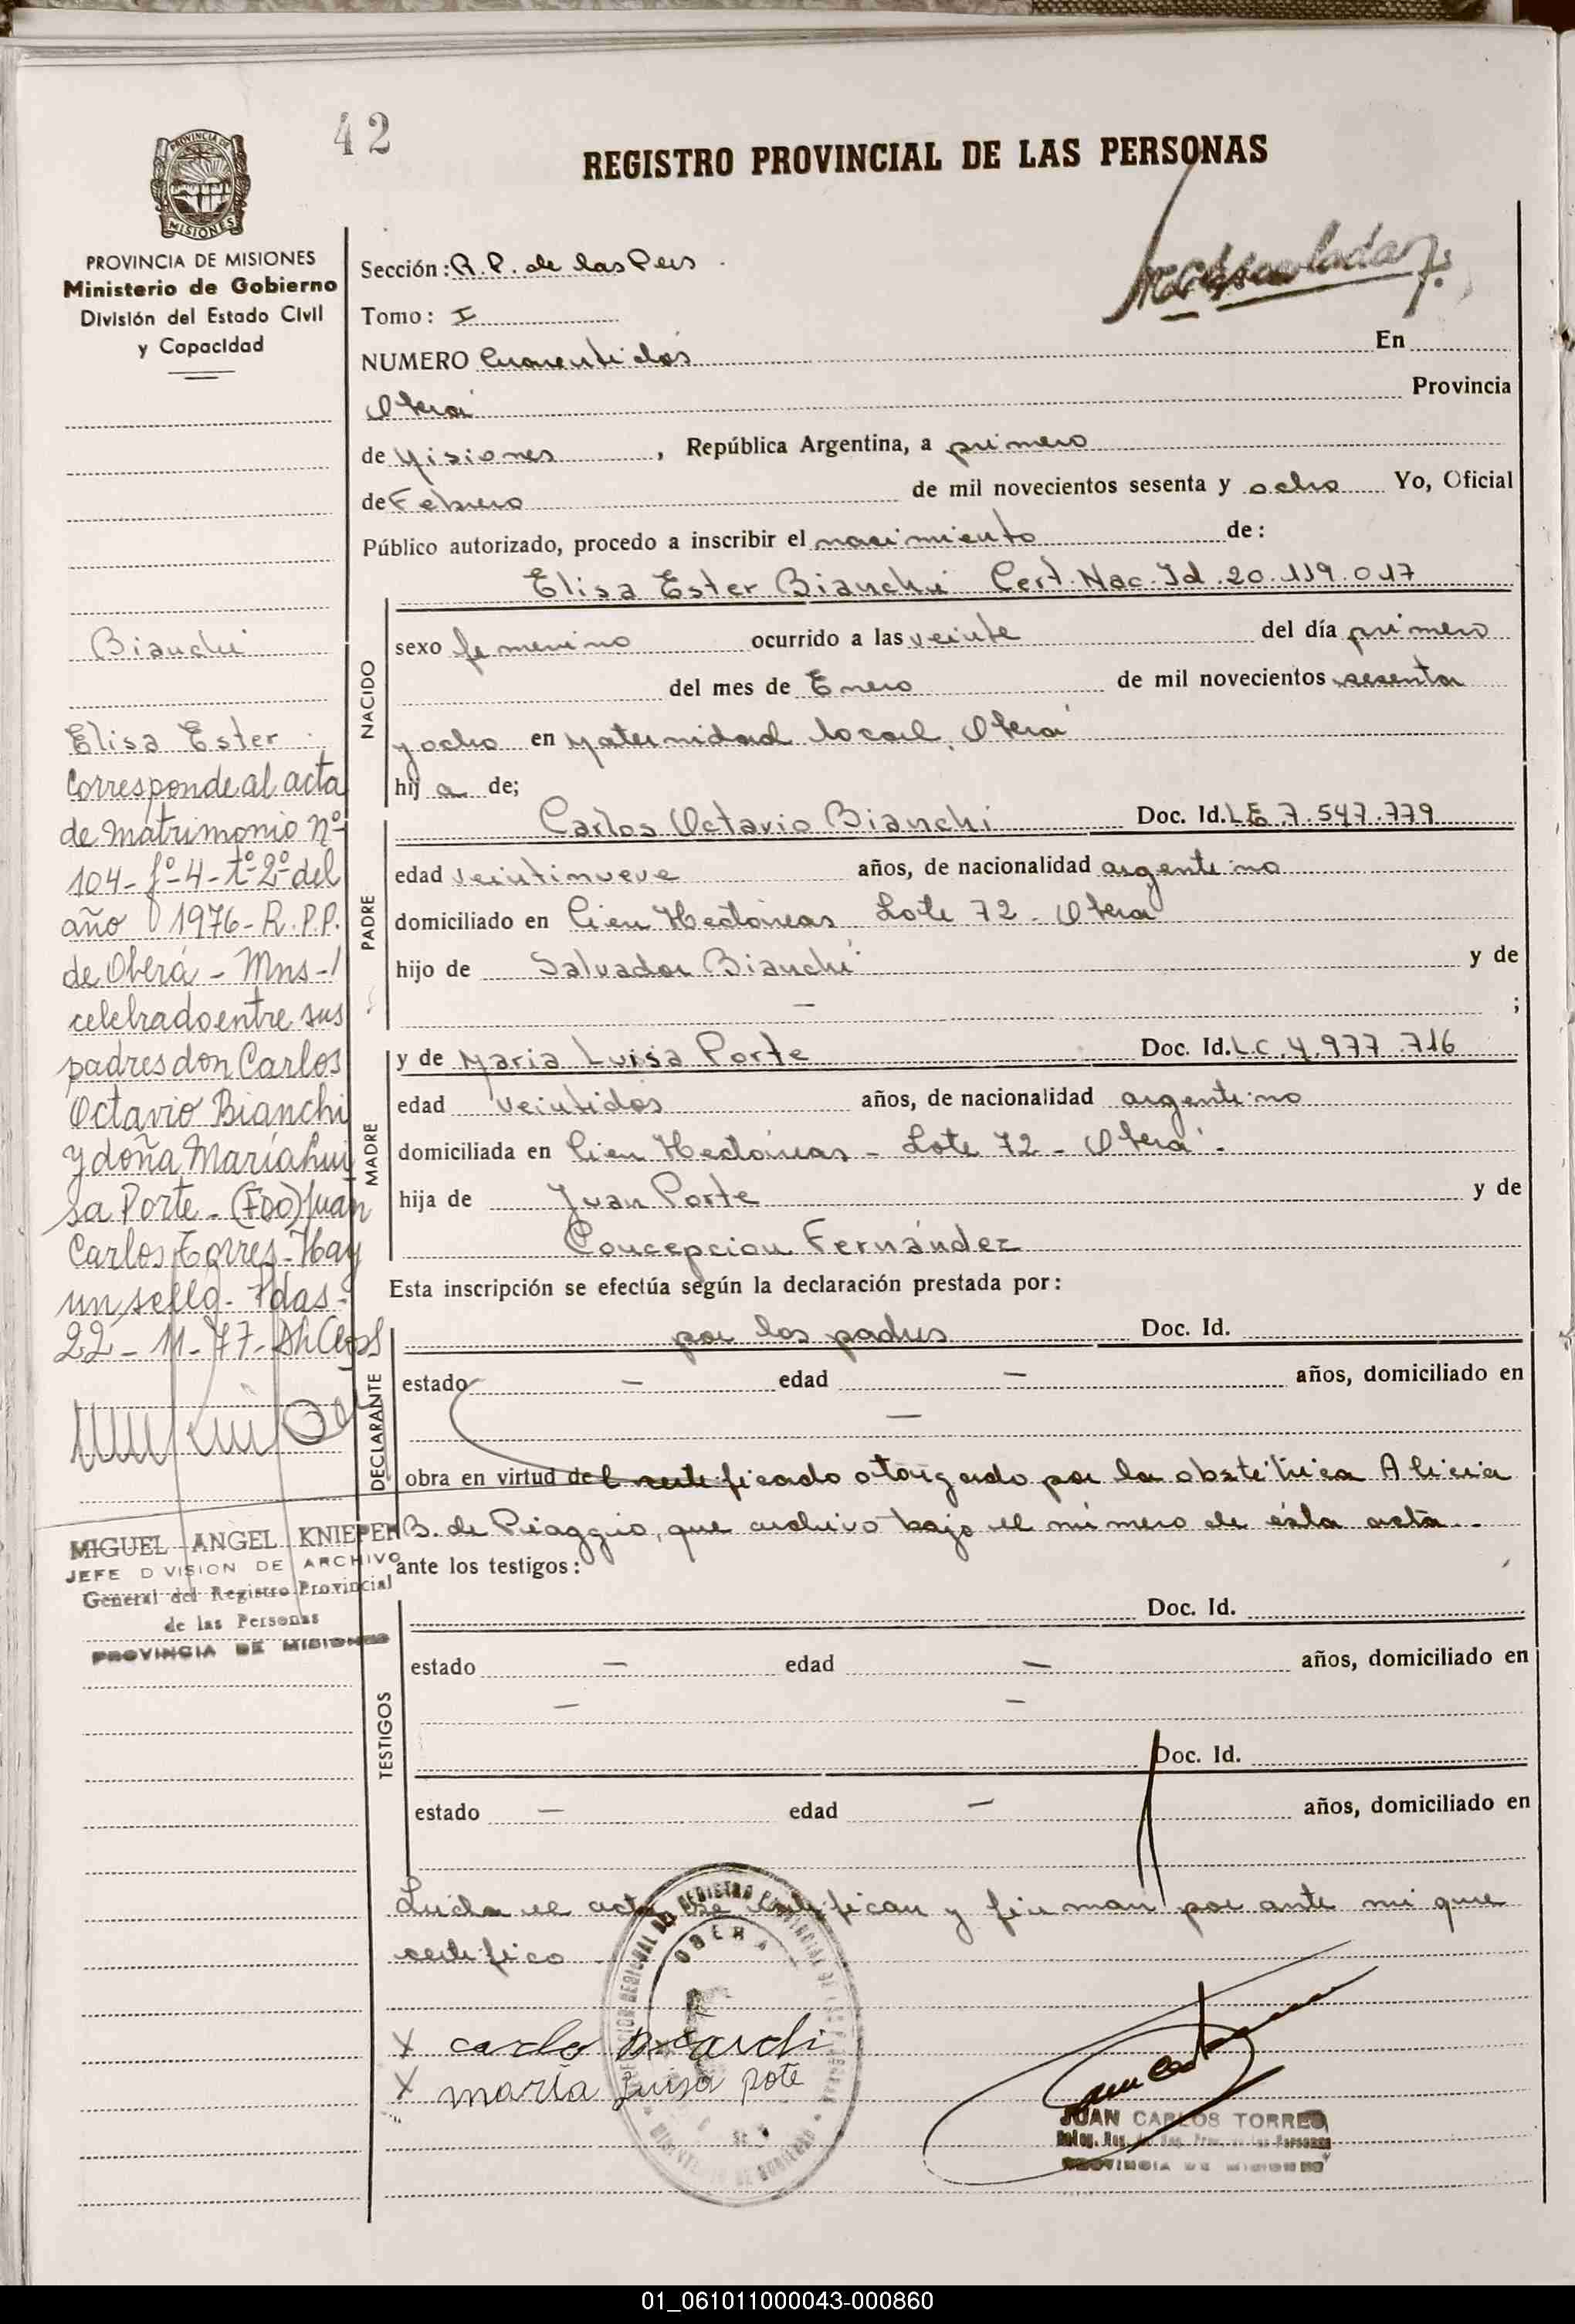 42
REGISTRO PROVINCIAL DE LAS PERSONAS
PROVINCIA DE
MISIONES
PROVINCIA DE MISIONES
Ministerio de Gobierno
División del Estado Civil
y Capacidad
Sección: R.P. de las Pers
Tomo: I
NUMERO Cuarentidos En
Oberá Provincia
de Misiones, República Argentina, a primero
de Febrero de mil novecientos sesenta y ocho Yo, Oficial
Público autorizado, procedo a inscribir el nacimiento de:
Elisa Ester Bianchi Cert. Nac. Id. 20.119.017
NACIDO
sexo femenino ocurrido a las veinte del día primero
del mes de Enero de mil novecientos sesenta
y ocho en Maternidad local, Oberá
hij a de;
PADRE
Carlos Octavio Bianchi Doc. Id. L E 7.547.779
edad veintinueve años, de nacionalidad argentino
domiciliado en Cien Hectáreas Lote 72 - Oberá
hijo de Salvador Bianchi y de
- ;
MADRE
y de Maria Luisa Porte Doc. Id. L C. 4.977.716
edad veintidos años, de nacionalidad argentino
domiciliada en Cien Hectáreas - Lote 72 - Oberá -
hija de Juan Porte y de
Concepcion Fernández
Esta inscripción se efectúa según la declaración prestada por:
DECLARANTE
por los padres Doc. Id.
estado - edad - años, domiciliado en
-
obra en virtud del certificado otorgado por la obstétrica Alicia
B. de Piaggio, que archivo bajo el número de ésta acta.-
ante los testigos:
TESTIGOS
Doc. Id.
estado - edad - años, domiciliado en
- -
Doc. Id.
estado - edad - años, domiciliado en
Leida el acta se ratifican y firman por ante mi que
certifico
x carlo Bianchi
x maría Luisa Pote
OBERA
MINISTERIO DE GOBIERNO
JUAN CARLOS TORRES
PROVINCIA DE MISIONES
Bianchi
Elisa Ester
Corresponde al acta
de Matrimonio Nº
104- fº-4- tº-2º del
año 1976- R.P.P.
de Oberá - Mns -
celebrado entre sus
padres don Carlos
Octavio Bianchi
y doña María Lui
sa Porte - (FDO) Juan
Carlos Torres - Hay
un sello - Pdas -
22 - 11 - 77 -
MIGUEL ANGEL KNIEPER
JEFE DIVISION DE ARCHIVO
General del Registro Provincial
de las Personas
PROVINCIA DE MISIONES
01_061011000043-000860